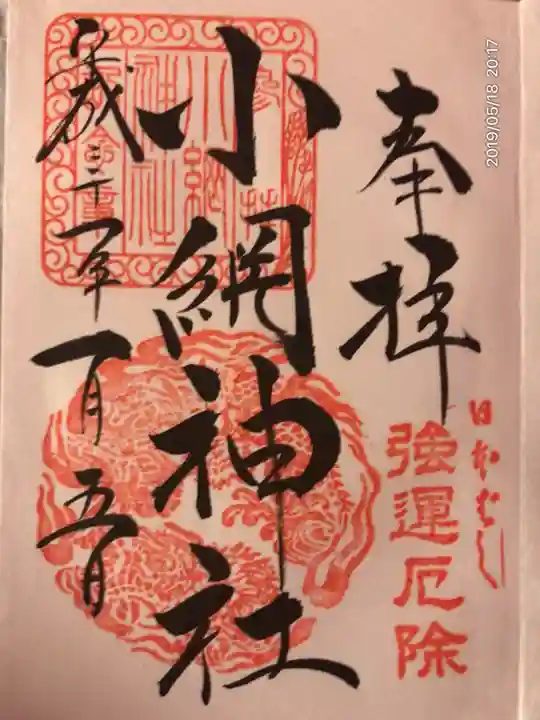 奉拝
日本ばし
強運厄除
小網神社
平成三十一年一月五日
2019/05/18 20:17